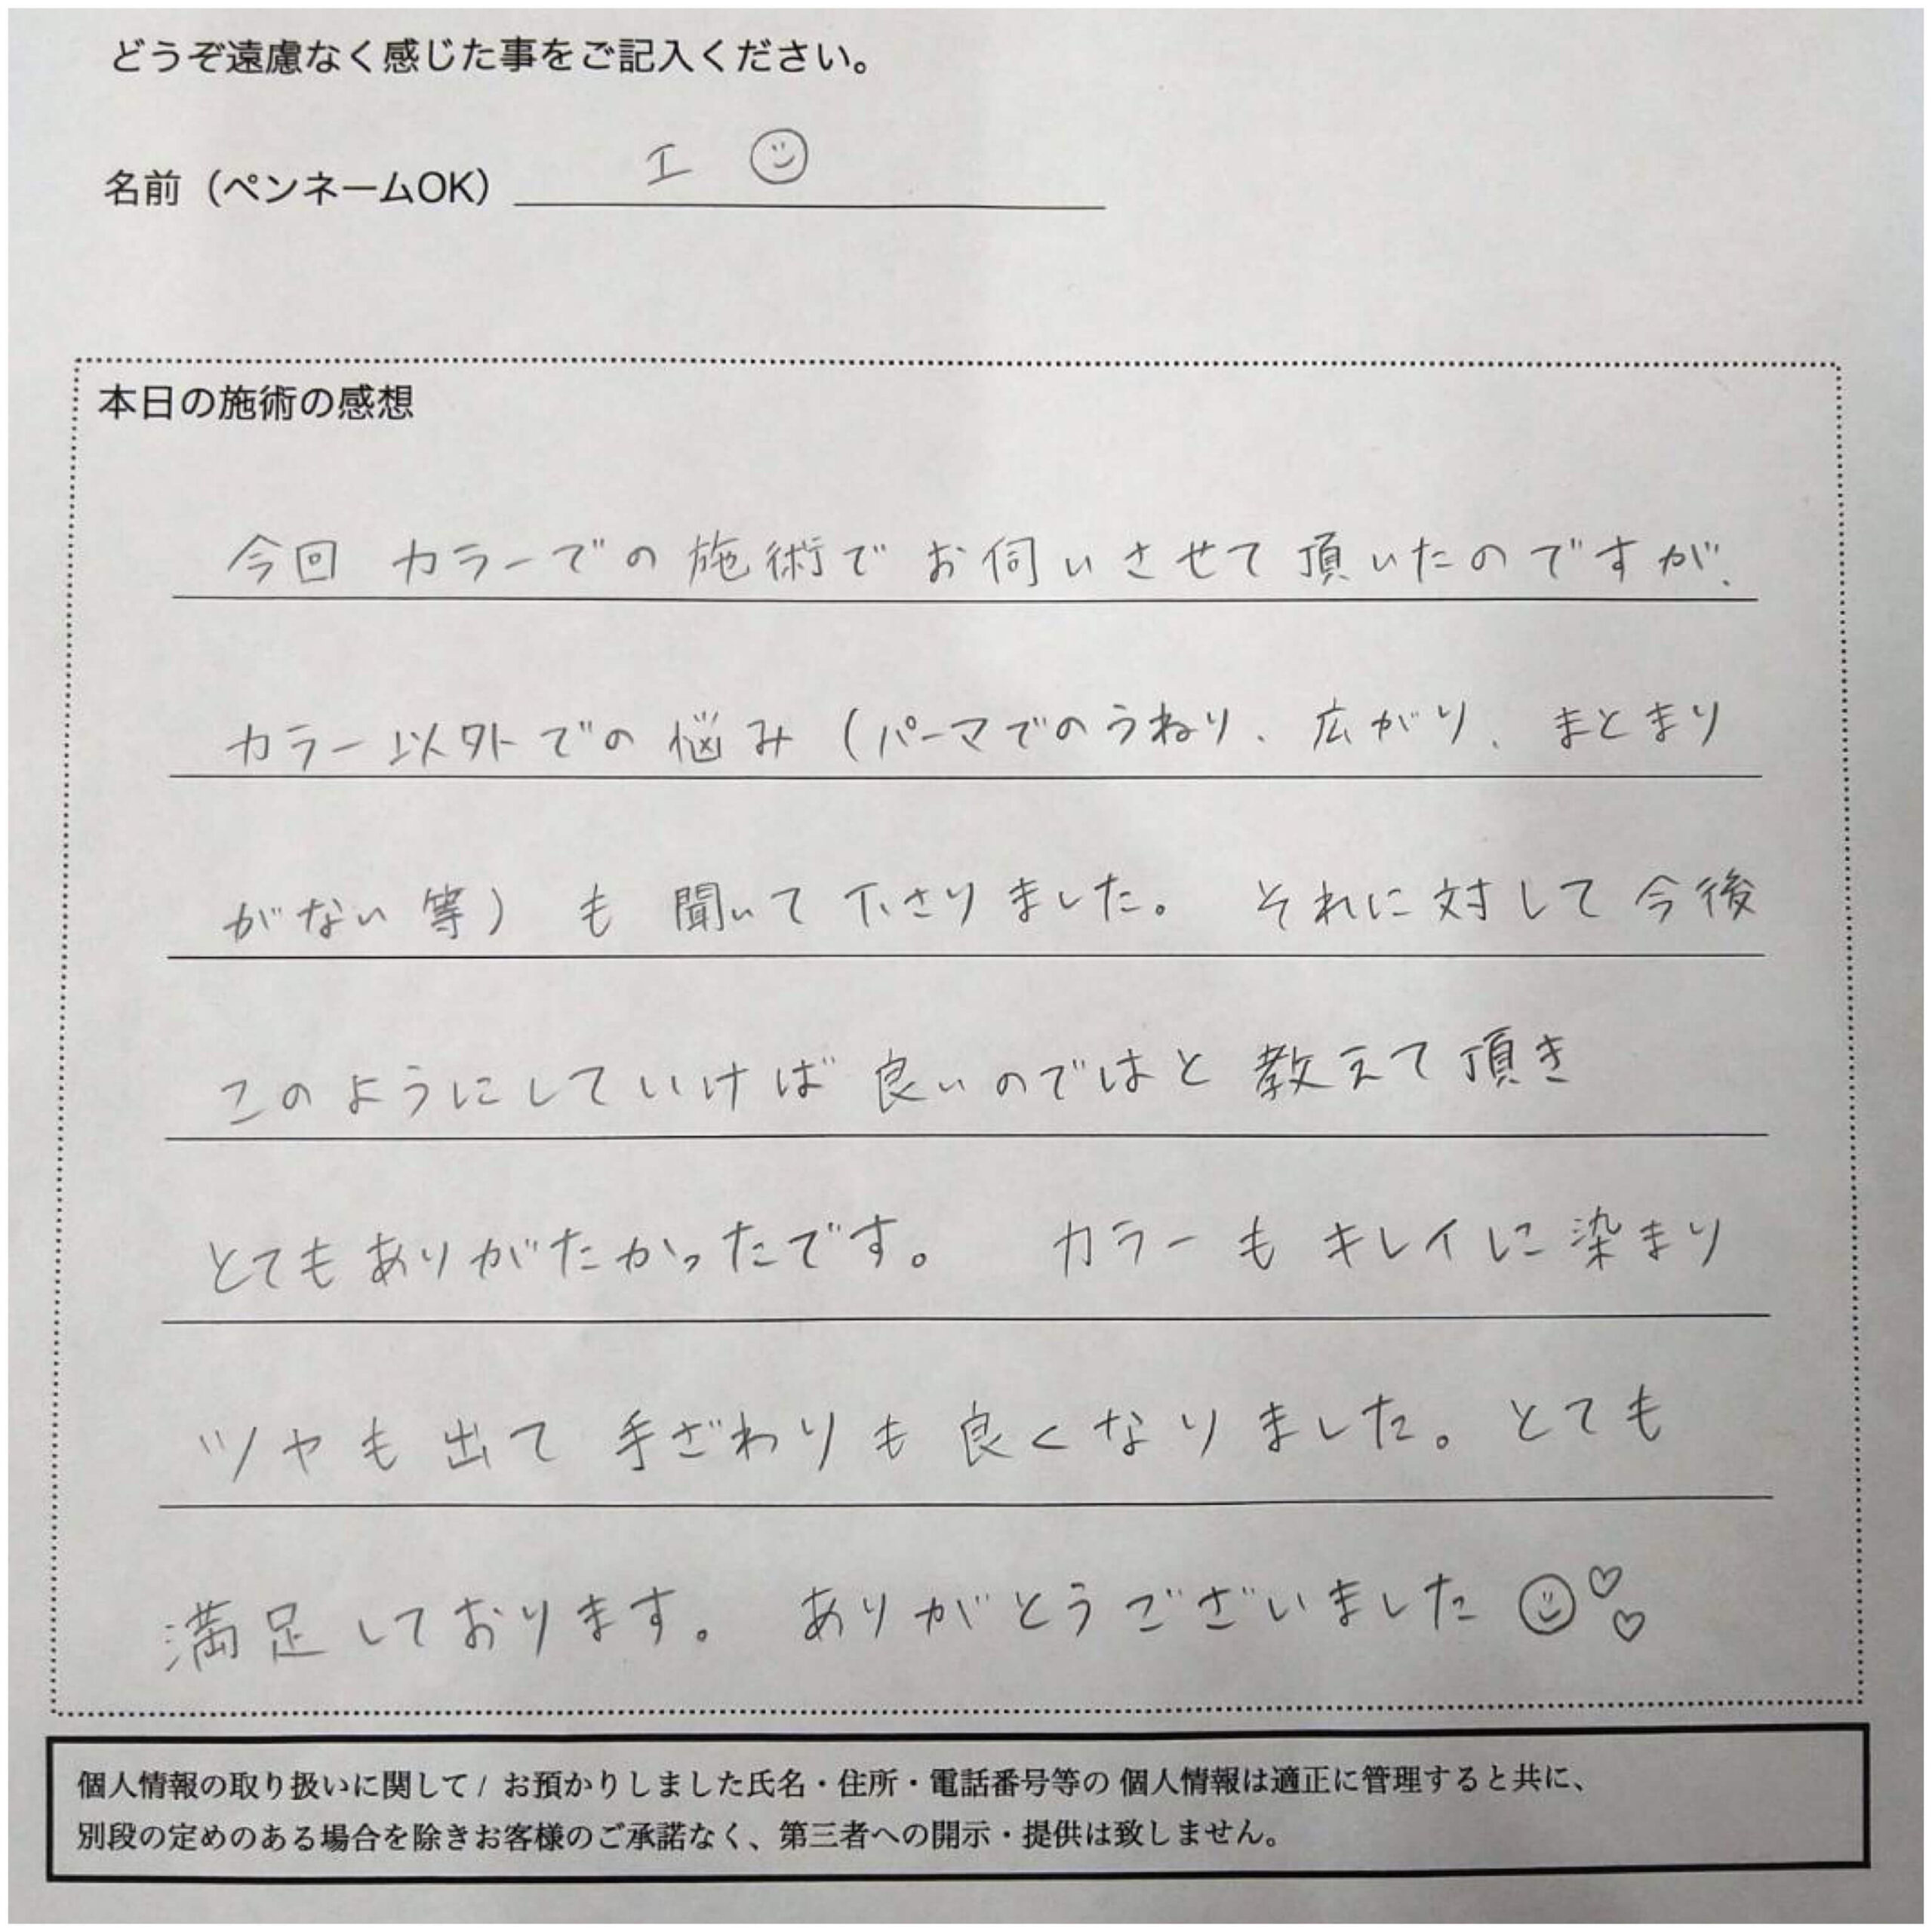 どうぞ遠慮なく感じた事をご記入ください。
名前（ペンネームOK） エ
本日の施術の感想
今回 カラーでの施術でお伺いさせて頂いたのですが、
カラー以外での悩み（パーマでのうねり、広がり、まとまり
がない等）も聞いて下さりました。それに対して今後
このようにしていけば良いのではと教えて頂き
とてもありがたかったです。 カラーもキレイに染まり
ツヤも出て手ざわりも良くなりました。とても
満足しております。 ありがとうございました
個人情報の取り扱いに関して / お預かりしました氏名・住所・電話番号等の 個人情報は適正に管理すると共に、
別段の定めのある場合を除きお客様のご承諾なく、第三者への開示・提供は致しません。